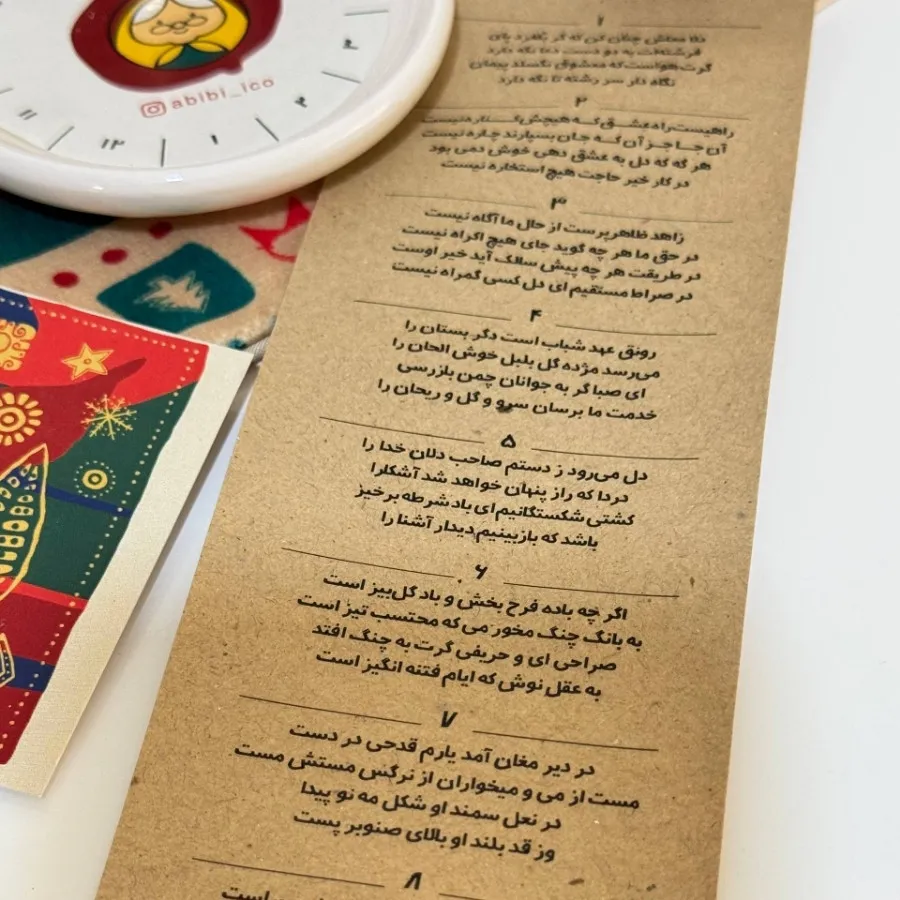 abibi_ico
۱۱
۱۲
۱
۲
۱
دلا معاش چنان کن که گر بلغزد پای
فرشته‌ات به دو دست دعا نگه دارد
گرت هواست که معشوق نگسلد پیمان
نگاه دار سر رشته تا نگه دارد
۲
راهیست راه عشق که هیچش کناره نیست
آن جا جز آن که جان بسپارند چاره نیست
هر گه که دل به عشق دهی خوش دمی بود
در کار خیر حاجت هیچ استخاره نیست
۳
زاهد ظاهرپرست از حال ما آگاه نیست
در حق ما هر چه گوید جای هیچ اکراه نیست
در طریقت هر چه پیش سالک آید خیر اوست
در صراط مستقیم ای دل کسی گمراه نیست
۴
رونق عهد شباب است دگر بستان را
می‌رسد مژده گل بلبل خوش الحان را
ای صبا گر به جوانان چمن بازرسی
خدمت ما برسان سرو و گل و ریحان را
۵
دل می‌رود ز دستم صاحب دلان خدا را
دردا که راز پنهان خواهد شد آشکارا
کشتی شکستگانیم ای باد شرطه برخیز
باشد که بازبینیم دیدار آشنا را
۶
اگر چه باده فرح بخش و باد گل‌بیز است
به بانگ چنگ مخور می که محتسب تیز است
صراحی ای و حریفی گرت به چنگ افتد
به عقل نوش که ایام فتنه انگیز است
۷
در دیر مغان آمد یارم قدحی در دست
مست از می و میخواران از نرگس مستش مست
در نعل سمند او شکل مه نو پیدا
وز قد بلند او بالای صنوبر پست
۸